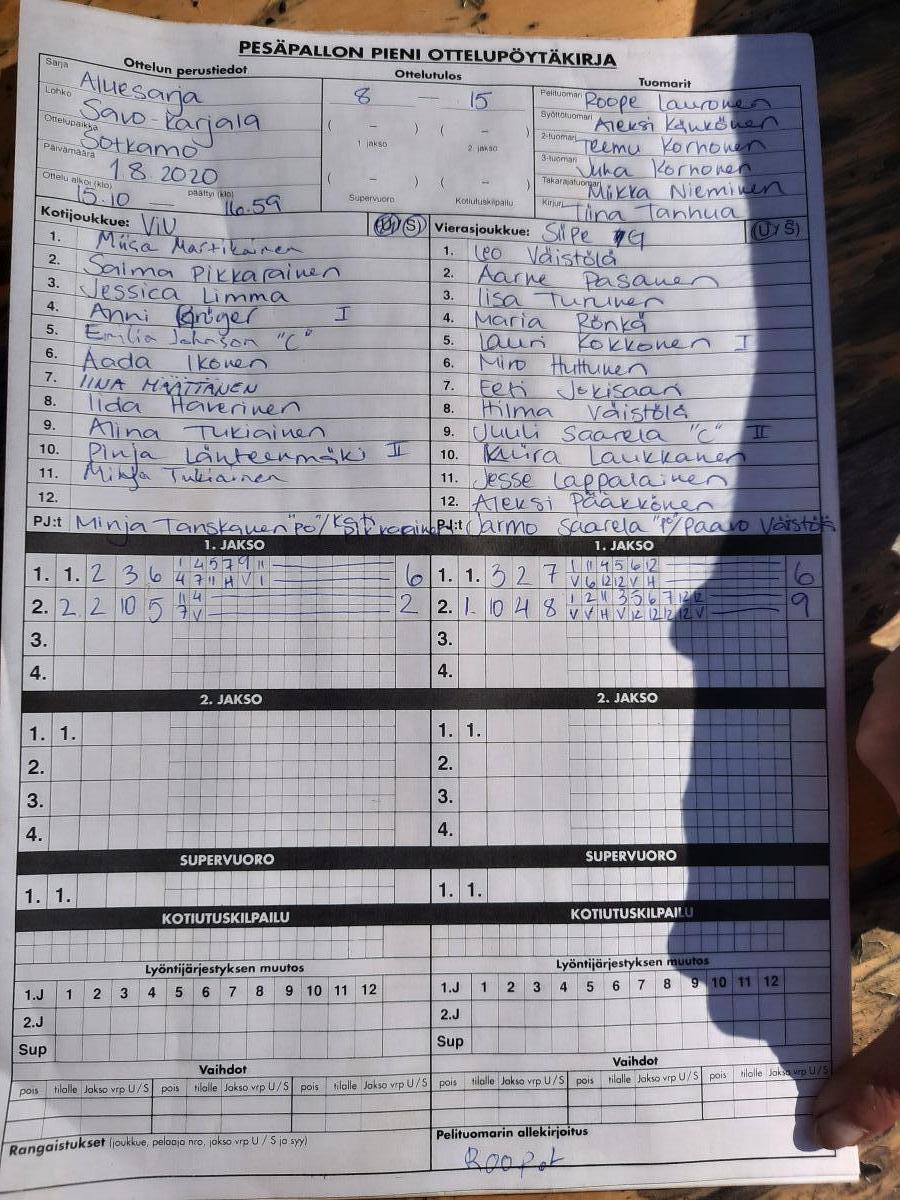 PESÄPALLON PIENI OTTELUPÖYTÄKIRJA
Ottelun perustiedot
Sarja Aluesarja
Lohko Savo-Karjala
Ottelupaikka Sotkamo
Päivämäärä 1.8.2020
Ottelu alkoi (klo) 15.10 — päättyi (klo) 16.59
Ottelutulos
8 — 15
( – ) ( – )
1 jakso 2 jakso
( – ) ( – )
Supervuoro Kotiutuskilpailu
Tuomarit
Pelituomari Roope Lauronen
Syöttötuomari Aleksi Känkönen
2-tuomari Teemu Korhonen
3-tuomari Juha Korhonen
Takarajatuomari Miikka Nieminen
Kirjuri Tiina Tanhua
Kotijoukkue: ViU U/S
1. Miisa Martikainen
2. Saima Pikkarainen
3. Jessica Limma
4. Anni Kröger I
5. Emilia Johnson "C"
6. Aada Ikonen
7. IINA HÄTTÄNEN
8. Iida Haverinen
9. Alina Tukiainen
10. Pinja Länteenmäki II
11. Tukiainen
12.
PJ:t Minja Tanskanen "PO"/
Vierasjoukkue: SiiPe G U/S
1. Leo Väistölä
2. Aarne Pasanen
3. Iisa Turunen
4. Maria Rönkä
5. Lauri Kokkonen I
6. Miro Huttunen
7. Eeti Jokisaari
8. Hilma Väistölä
9. Juuli Saarela "C" II
10. Laukkanen
11. Jesse Lappalainen
12. Aleksi Pääkkönen
PJ:t Jarmo Saarela "PO"/Paavo Väistölä
1. JAKSO
1. 1. 2 3 6 1 4 5 7 9 11 6
4 7 11 H V 1
2. 2 2 10 5 11 4 2
7 V
3.
4.
1. JAKSO
1. 1. 3 2 7 1 11 4 5 6 12 6
V 6 12 12 V H
2. 1. 10 4 8 1 2 11 3 5 6 7 12 12 9
V V H V 12 12 12 12 V
3.
4.
2. JAKSO
1. 1.
2.
3.
4.
2. JAKSO
1. 1.
2.
3.
4.
SUPERVUORO
1. 1.
SUPERVUORO
1. 1.
KOTIUTUSKILPAILU
KOTIUTUSKILPAILU
Lyöntijärjestyksen muutos
1.J 1 2 3 4 5 6 7 8 9 10 11 12
2.J
Sup
Lyöntijärjestyksen muutos
1.J 1 2 3 4 5 6 7 8 9 10 11 12
2.J
Sup
Vaihdot
pois tilalle Jakso vrp U/S pois tilalle Jakso vrp U/S pois tilalle Jakso vrp U/S
Vaihdot
pois tilalle Jakso vrp U/S pois tilalle Jakso vrp U/S pois tilalle Jakso vrp U/S
Rangaistukset (joukkue, pelaaja nro, jakso vrp U / S ja syy)
Pelituomarin allekirjoitus